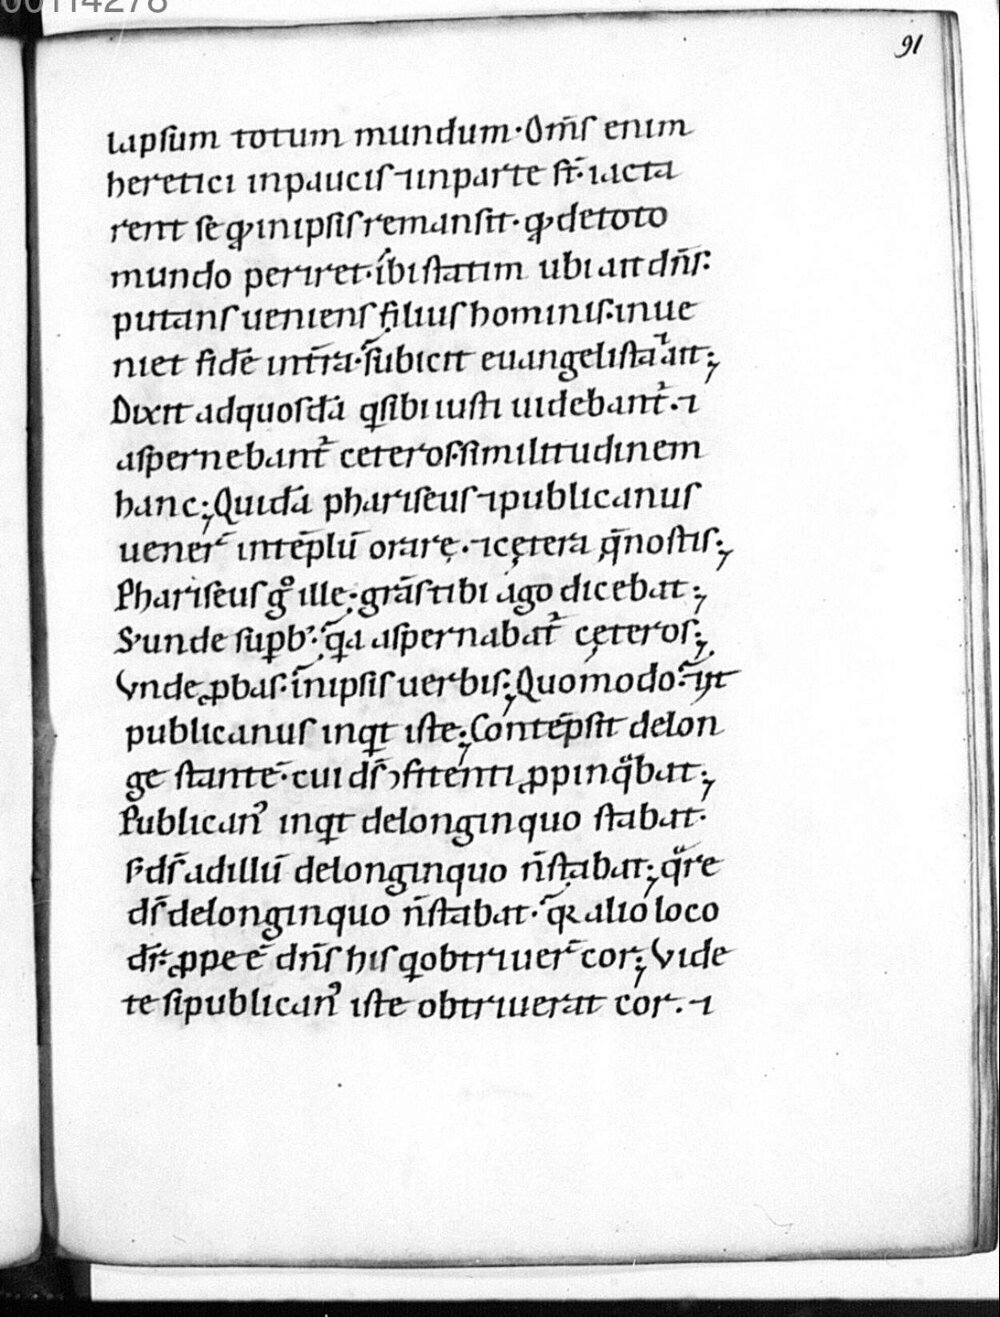 00114278
91
lapsum totum mundum· Om̅s enim
heretici inpaucis ⁊inparte st̅· iacta
rent se qͥ inipsis remansit· qͥ detoto
mundo periret· ibi statim ubi ait dn̅s·
putans ueniens filius hominis· inue
niet fidē int̅ra· subicit euangelista ⁊ait;
Dixit adquosdā q̅sibi iusti uidebantᷣ· ⁊
aspernebantᷣ ceteros· similitudinem
hanc; Quidā phariseus ⁊publicanus
uener̅ intēplū orare· ⁊cętera q̅nostis;
Phariseus gͦ ille; gra̅s tibi ago dicebat;
S᾽unde supb᾽· q̅a aspernabatᷣ cęteros;
Vnde ꝓbas· inipsis uerbis; Quomodo·
publicanus inqt iste; Contēpsit delon
ge stantē· cui ds̅ ↄfitenti ꝓpinqᵃbat;
Publicanꝰ inqt delonginquo stabat·
S; ds̅ adillū delonginquo n̅stabat; qᵃre
ds̅ delonginquo n̅stabat· qꝛ alio loco
dr̅· ꝓpe ē dn̅s his q̅obtriuer̅ cor; Vide
te sipublicanꝰ iste obtriuerat cor· ⁊